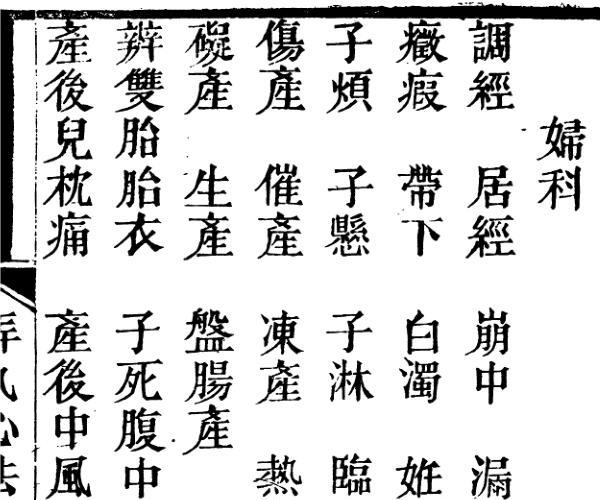 婦科
調經 居經 崩中 漏
癥瘕 帶下 白濁 妊
子煩 子懸 子淋 臨
傷產 催產 凍產 熱
礙產 生產 盤腸產
辨雙胎胎衣 子死腹中
產後兒枕痛 產後中風